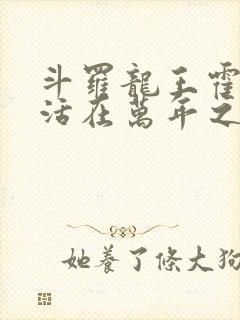 斗羅龍王霍
活在萬年之
她養了條大狗